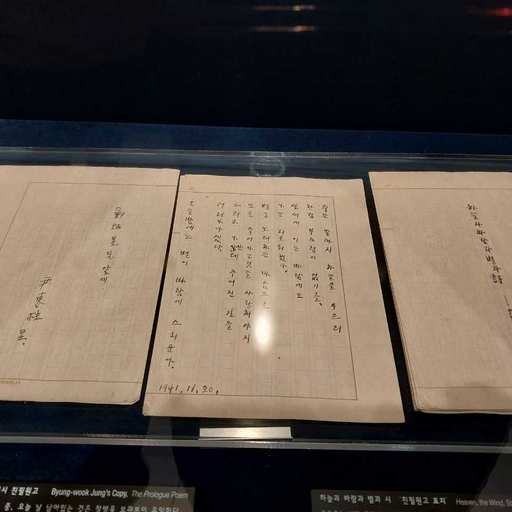 鄭炳昱 형 앞에
尹東柱 呈.
죽는 날까지 하늘을 우르러
한점 부끄럼이 없기를,
잎새에 이는 바람에도
나는 괴로워했다.
별을 노래하는 마음으로
모든 죽어가는것을 사랑해야지
그리고 나안테 주어진 길을
거러가야겠다.
오늘밤에도 별이 바람에 스치운다.
1941.11.20.
하늘과바람과별과詩
시 친필원고 Byung-wook Jung's Copy, The Prologue Poem
오늘 날 남아있는 것은 정병욱 보관본이 유일하다
하늘과 바람과 별과 시 '친필원고 표지' Heaven, the Wind,